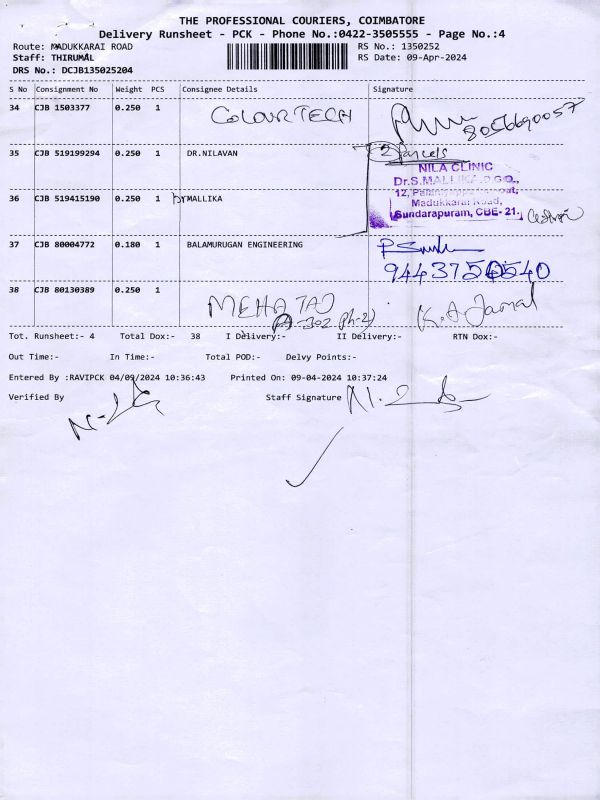 THE PROFESSIONAL COURIERS, COIMBATORE
Delivery Runsheet - PCK - Phone No.:0422-3505555 - Page No.:4
Route: MADUKKARAI ROAD
RS No.: 1350252
Staff: THIRUMAL
RS Date: 09-Apr-2024
DRS No.: DCJB135025204
S No Consignment No Weight PCS Consignee Details Signature
34 CJB 1503377 0.250 1 COLOUR TECH
8056690057
35 CJB 519199294 0.250 1 DR.NILAVAN
2 Parcels
NILA CLINIC
Dr.S.MALLIKA
12,
Madukkarai Road,
Sundarapuram, CBE- 21.
36 CJB 519415190 0.250 1 Dr MALLIKA
37 CJB 80004772 0.180 1 BALAMURUGAN ENGINEERING
38 CJB 80130389 0.250 1 MEHA TAJ
302 Ph-2)
K.A Jamal
Tot. Runsheet:- 4 Total Dox:- 38 I Delivery:- II Delivery:- RTN Dox:-
Out Time:- In Time:- Total POD:- Delvy Points:-
Entered By :RAVIPCK 04/09/2024 10:36:43 Printed On: 09-04-2024 10:37:24
Verified By Staff Signature